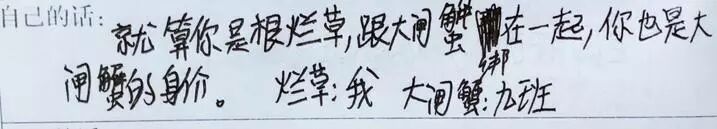 自己的话:就算你是根烂草,跟大闸蟹绑在一起,你也是大
闸蟹的身价。 烂草:我 大闸蟹:九班